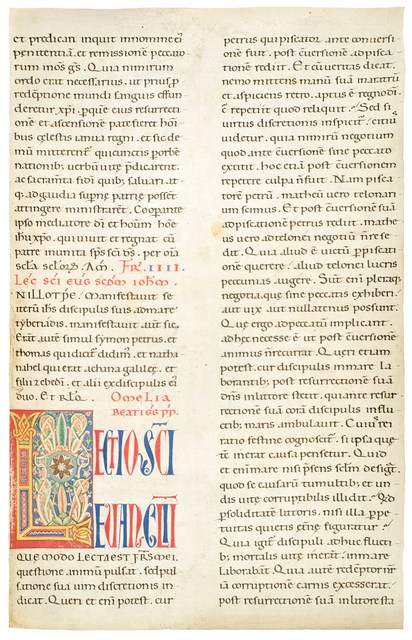 et predicari inquit innomine eī
penitentiā. et remissionē peccato-
rum inoś gs̄. Quia nimirum
ordo erat necessarius. ut prius p
redēptione mundi sanguis effun-
deretur xp̄i. pq̄ue eius resurrecti-
onē et ascensionē patefieret homi-
bus celestis ianua regni. et sic de-
mū mitterent̄ qui cunctis p orbē
nationib; verbū vitę p̄dicarent.
ac sacramta fidi quib; saluari. at-
q; ad gaudia supnę patrię possent
attingere ministrarent. Cooperante
ipso mediatore dī et hoūm home
ihu xp̄o. qui uiuit et regnat cū
patre in unita sp̄s scī ds̄. per oīa
scl̄a scl̄orȝ. Am̄. Fr̄. IIII.
Lec̄ sci eug̅ scd̄m ioh̄m.
IN ILLO TP̄E. Manifestauit se
iterū ih̄s discipulis suis ad mare
tyberiadis. manifestauit aūt sic.
Erāt autē simul symon petrus. et
thomas qui dicit̄ didim̄. et natha-
nahel qui erat a chana galileę. et
filii zebedi. et alii ex discipulis ei
duo. Et rl̄q̄. OMELIA
BEATI GG̅ PP̅.
LECTIO SC̄I
EVANGLII
QUE MODO LECTA EST FR̄S MEI.
questione animū pulsat. sed pul-
satione sua uim discretionis in-
dicat. Queri etenī potest. cur
petrus qui piscator ante conuersi-
onē fuit. post c̄uersionē ad pisca-
tionē rediit. Et cū ueritas dicat.
nemo mittens manū suā in aratrū
et aspiciens retro. aptus ē regno dī.
c̄ repetiit quod reliquit. Sed si
uirtus discretionis inspicit̄. citi᷒
uidetur. quia nimirū negotium
quod ante c̄uersionē sine peccato
extitit. hoc etiā post c̄uersionem
repetere culpa n̄ fuit. Nam pisca-
torē petrū. matheū uero telonari-
um scimus. Et post c̄uersionē suā
ad piscationē petrus rediit. mathe-
us uero ad telonei negotiū n̄ rese-
dit. Quia aliud ē uictū p piscati-
onē querere. aliud telonei lucris
pecunias augere. Sūt enī pleraq;
negotia. que sine peccatis exhiberi.
aut uix aut nullatenus possunt.
Quę ergo ad peccatū implicant.
ad hęc necesse ē ut post c̄uersionē
animus n̄ recurrat. Queri etiam
potest. cur discipulis in mare la-
borantib; post resurrectionē suā
dn̄s in littore stetit. qui ante resur-
rectionē suā corā discipulis in flu-
ctib; maris ambulauit. Cui᷒ rei
ratio festine cognoscit̄. si ipsa quę
tc̄ inerat causa pensetur. Quid
et enī mare nisi p̄sens sclm̄ desig̅t̄.
quod se causarū tumultib; et un-
dis vitę corruptibilis illidit. Quid
p soliditatē littoris. nisi illa p̄pe-
tuitas quietis ętn̄ę figuratur
Quia igit̄ discipuli adhuc flucti-
b; mortalis vitę inerāt. in mare
laborabant. Quia autē redēptor nr̄
iā corruptionē carnis excesserat.
post resurrectionē suā in litore sta-